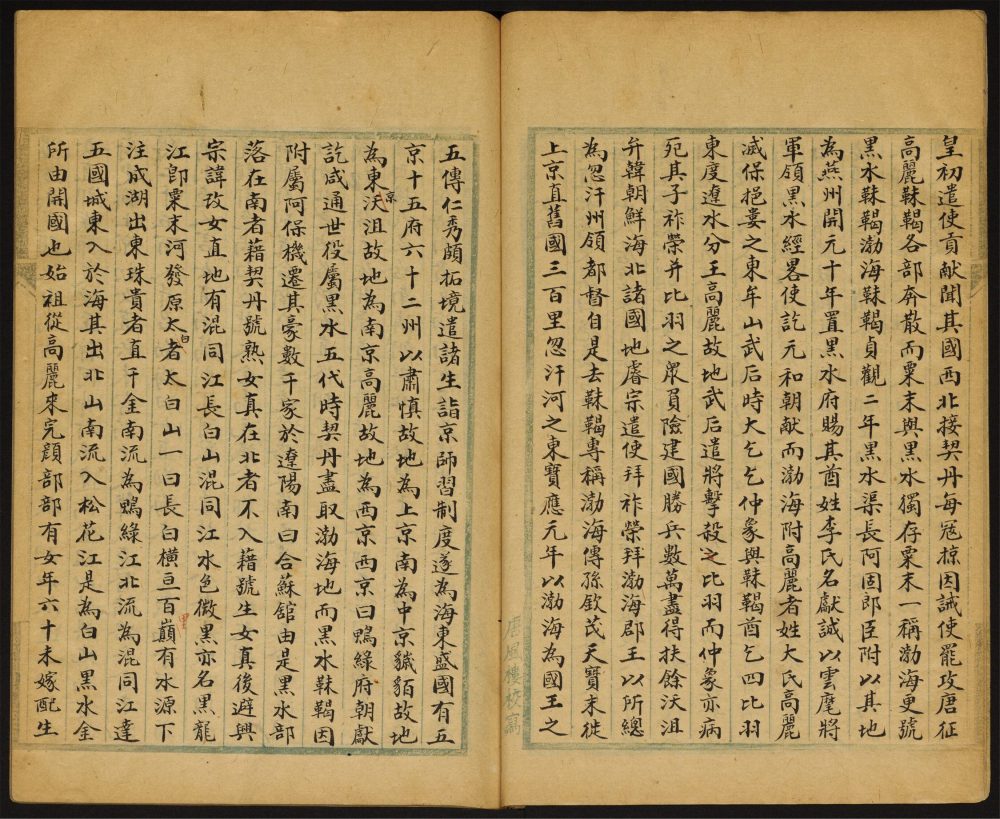 皇初遣使貢献聞其國西北接契丹每冦掠因誡使罷攻唐征
高麗靺鞨各部奔散而粟末與黑水獨存粟末一稱渤海更號
黑水靺鞨渤海靺鞨貞觀二年黑水渠長阿固郎臣附以其地
為燕州開元十年置黑水府賜其酋姓李氏名獻誠以雲麾將
軍領黑水經畧使訖元和朝献而渤海附高麗者姓大氏高麗
滅保挹婁之東牟山武后時大乞乞仲象與靺鞨酋乞四比羽
東度遼水分王高麗故地武后遣將擊殺之比羽而仲象亦病
死其子祚榮并比羽之眾負險建國勝兵數萬盡得扶餘沃沮
弁韓朝鮮海北諸國地睿宗遣使拜祚榮拜渤海郡王以所總
為忽汗州領都督自是去靺鞨專稱渤海傳孫欽茂天寶末徙
上京直舊國三百里忽汗河之東寶應元年以渤海為國王之
唐風樓校寫
五傳仁秀頗拓境遣諸生詣京師習制度遂為海東盛國有五
京十五府六十二州以肅慎故地為上京南為中京貊故地
為東京沃沮故地為南京高麗故地為西京西京曰鴨綠府朝獻
訖咸通世役屬黑水五代時契丹盡取渤海地而黑水靺鞨因
附屬阿保機遷其豪數千家於遼陽南曰合蘇館由是黑水部
落在南者藉契丹號熟女真在北者不入藉號生女真後避興
宗諱攺女直地有混同江長白山混同江水色微黑亦名黑龍
江卽粟末河發原太白者太白山一曰長白橫亘百里巔有水源下
注成湖出東珠貴者直千金南流為鴨綠江北流為混同江達
五國城東入於海其出北山南流入松花江是為白山黑水金
所由開國也始祖從高麗來完顏部部有女年六十未嫁配生